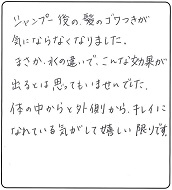 シャンプー後の、髪のゴワつきが
気にならなくなりました。
まさか、水の違いで、こんな効果が
出るとは思ってもいませんでした。
体の中からと外側から、キレイに
なれている気がして嬉しい限りです